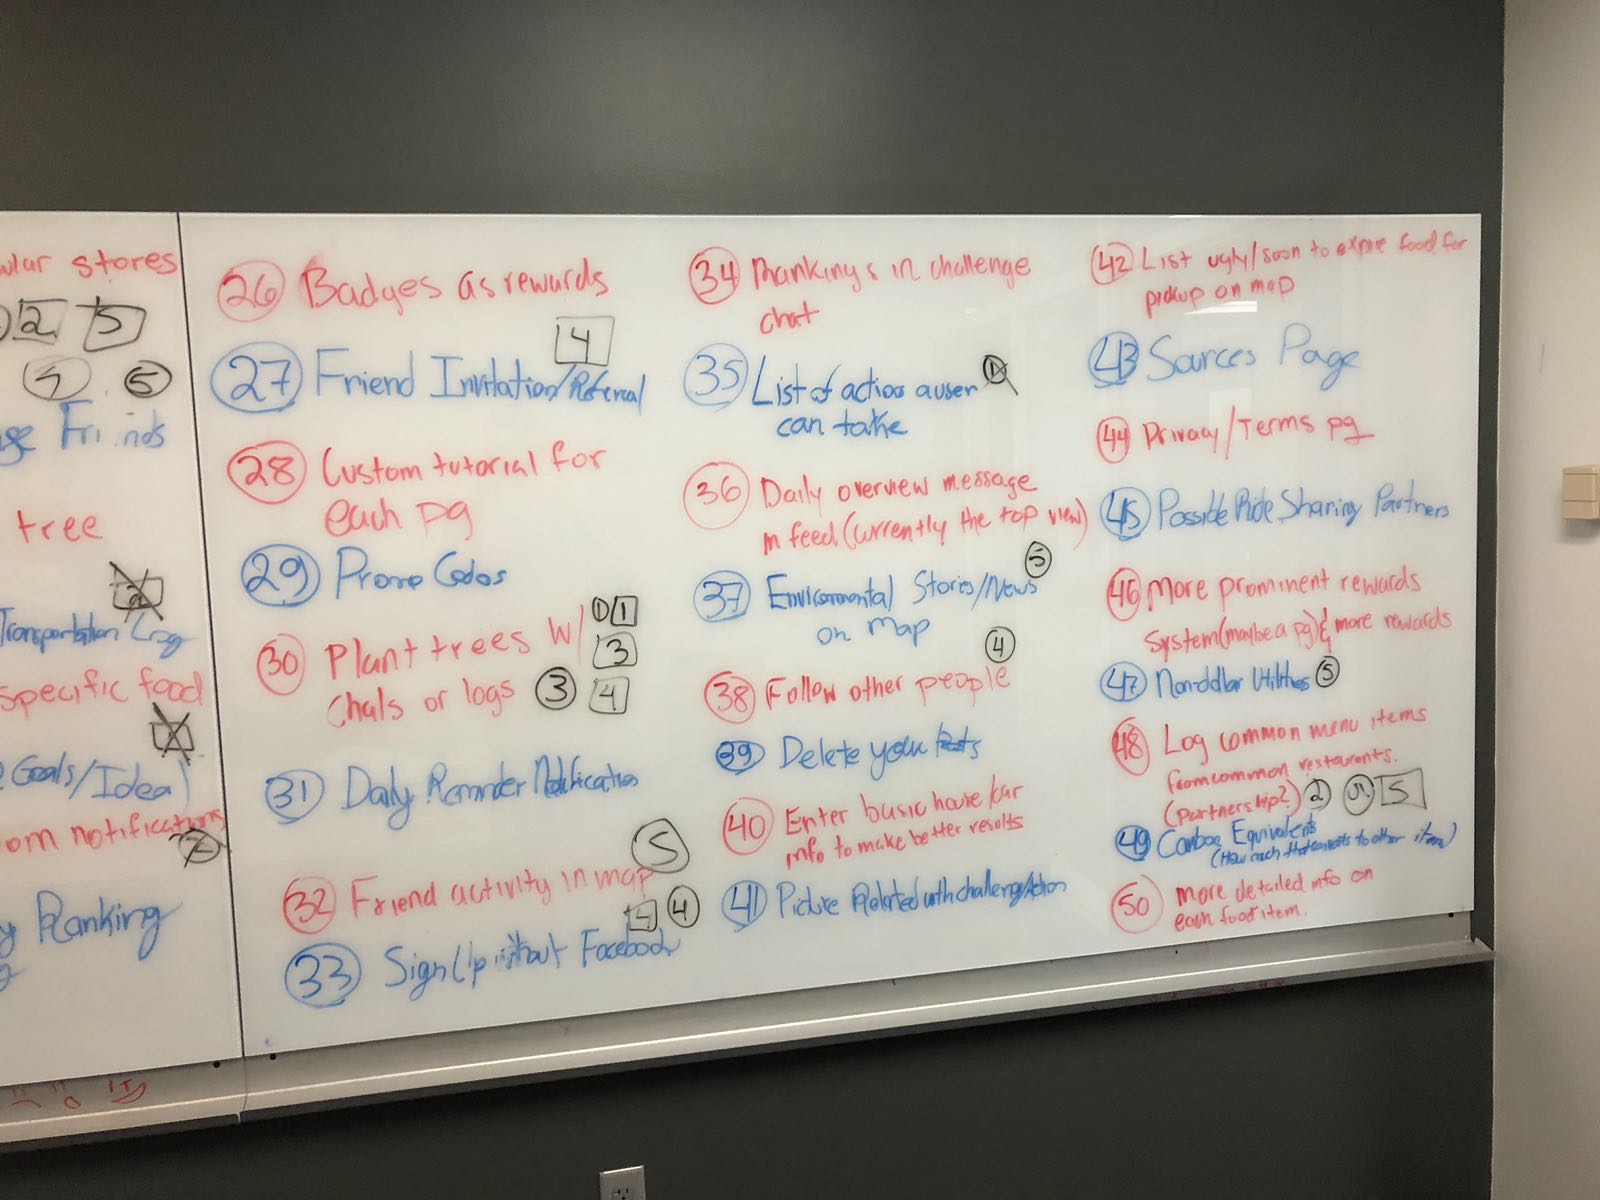 ular stores
2 5
4 5
Friends
tree
2
Transportation Log
specific food
Goals/Idea)
om notifications
2
y Ranking
26 Badges as rewards
4
27 Friend Invitation/Referral
28 Custom tutorial for
each pg
29 Promo Codes
30 Plant trees w/ 1 1
3
chals or logs 3 4
31 Daily Reminder Notification
5
32 Friend activity in map
4 4
33 Sign Up without Facebook
34 Rankings in challenge
chat
35 List of actions a user 1
can take
36 Daily overview message
in feed (currently the top view)
5
37 Environmental Stories/News
on map
4
38 Follow other people
39 Delete your Posts
40 Enter basic house/car
info to make better results
41 Picture Related with challenge/Action
42 List ugly/soon to expire food for
pickup on map
43 Sources Page
44 Privacy/Terms pg
45 Possible Ride Sharing Partners
46 More prominent rewards
system (maybe a pg) & more rewards
47 Non-dollar Utilities 5
48 Log common menu items
from common restaurants.
(partnership?) 2 5
49 Carbon Equivalents
(How much that converts to other items)
50 more detailed info on
each food item.